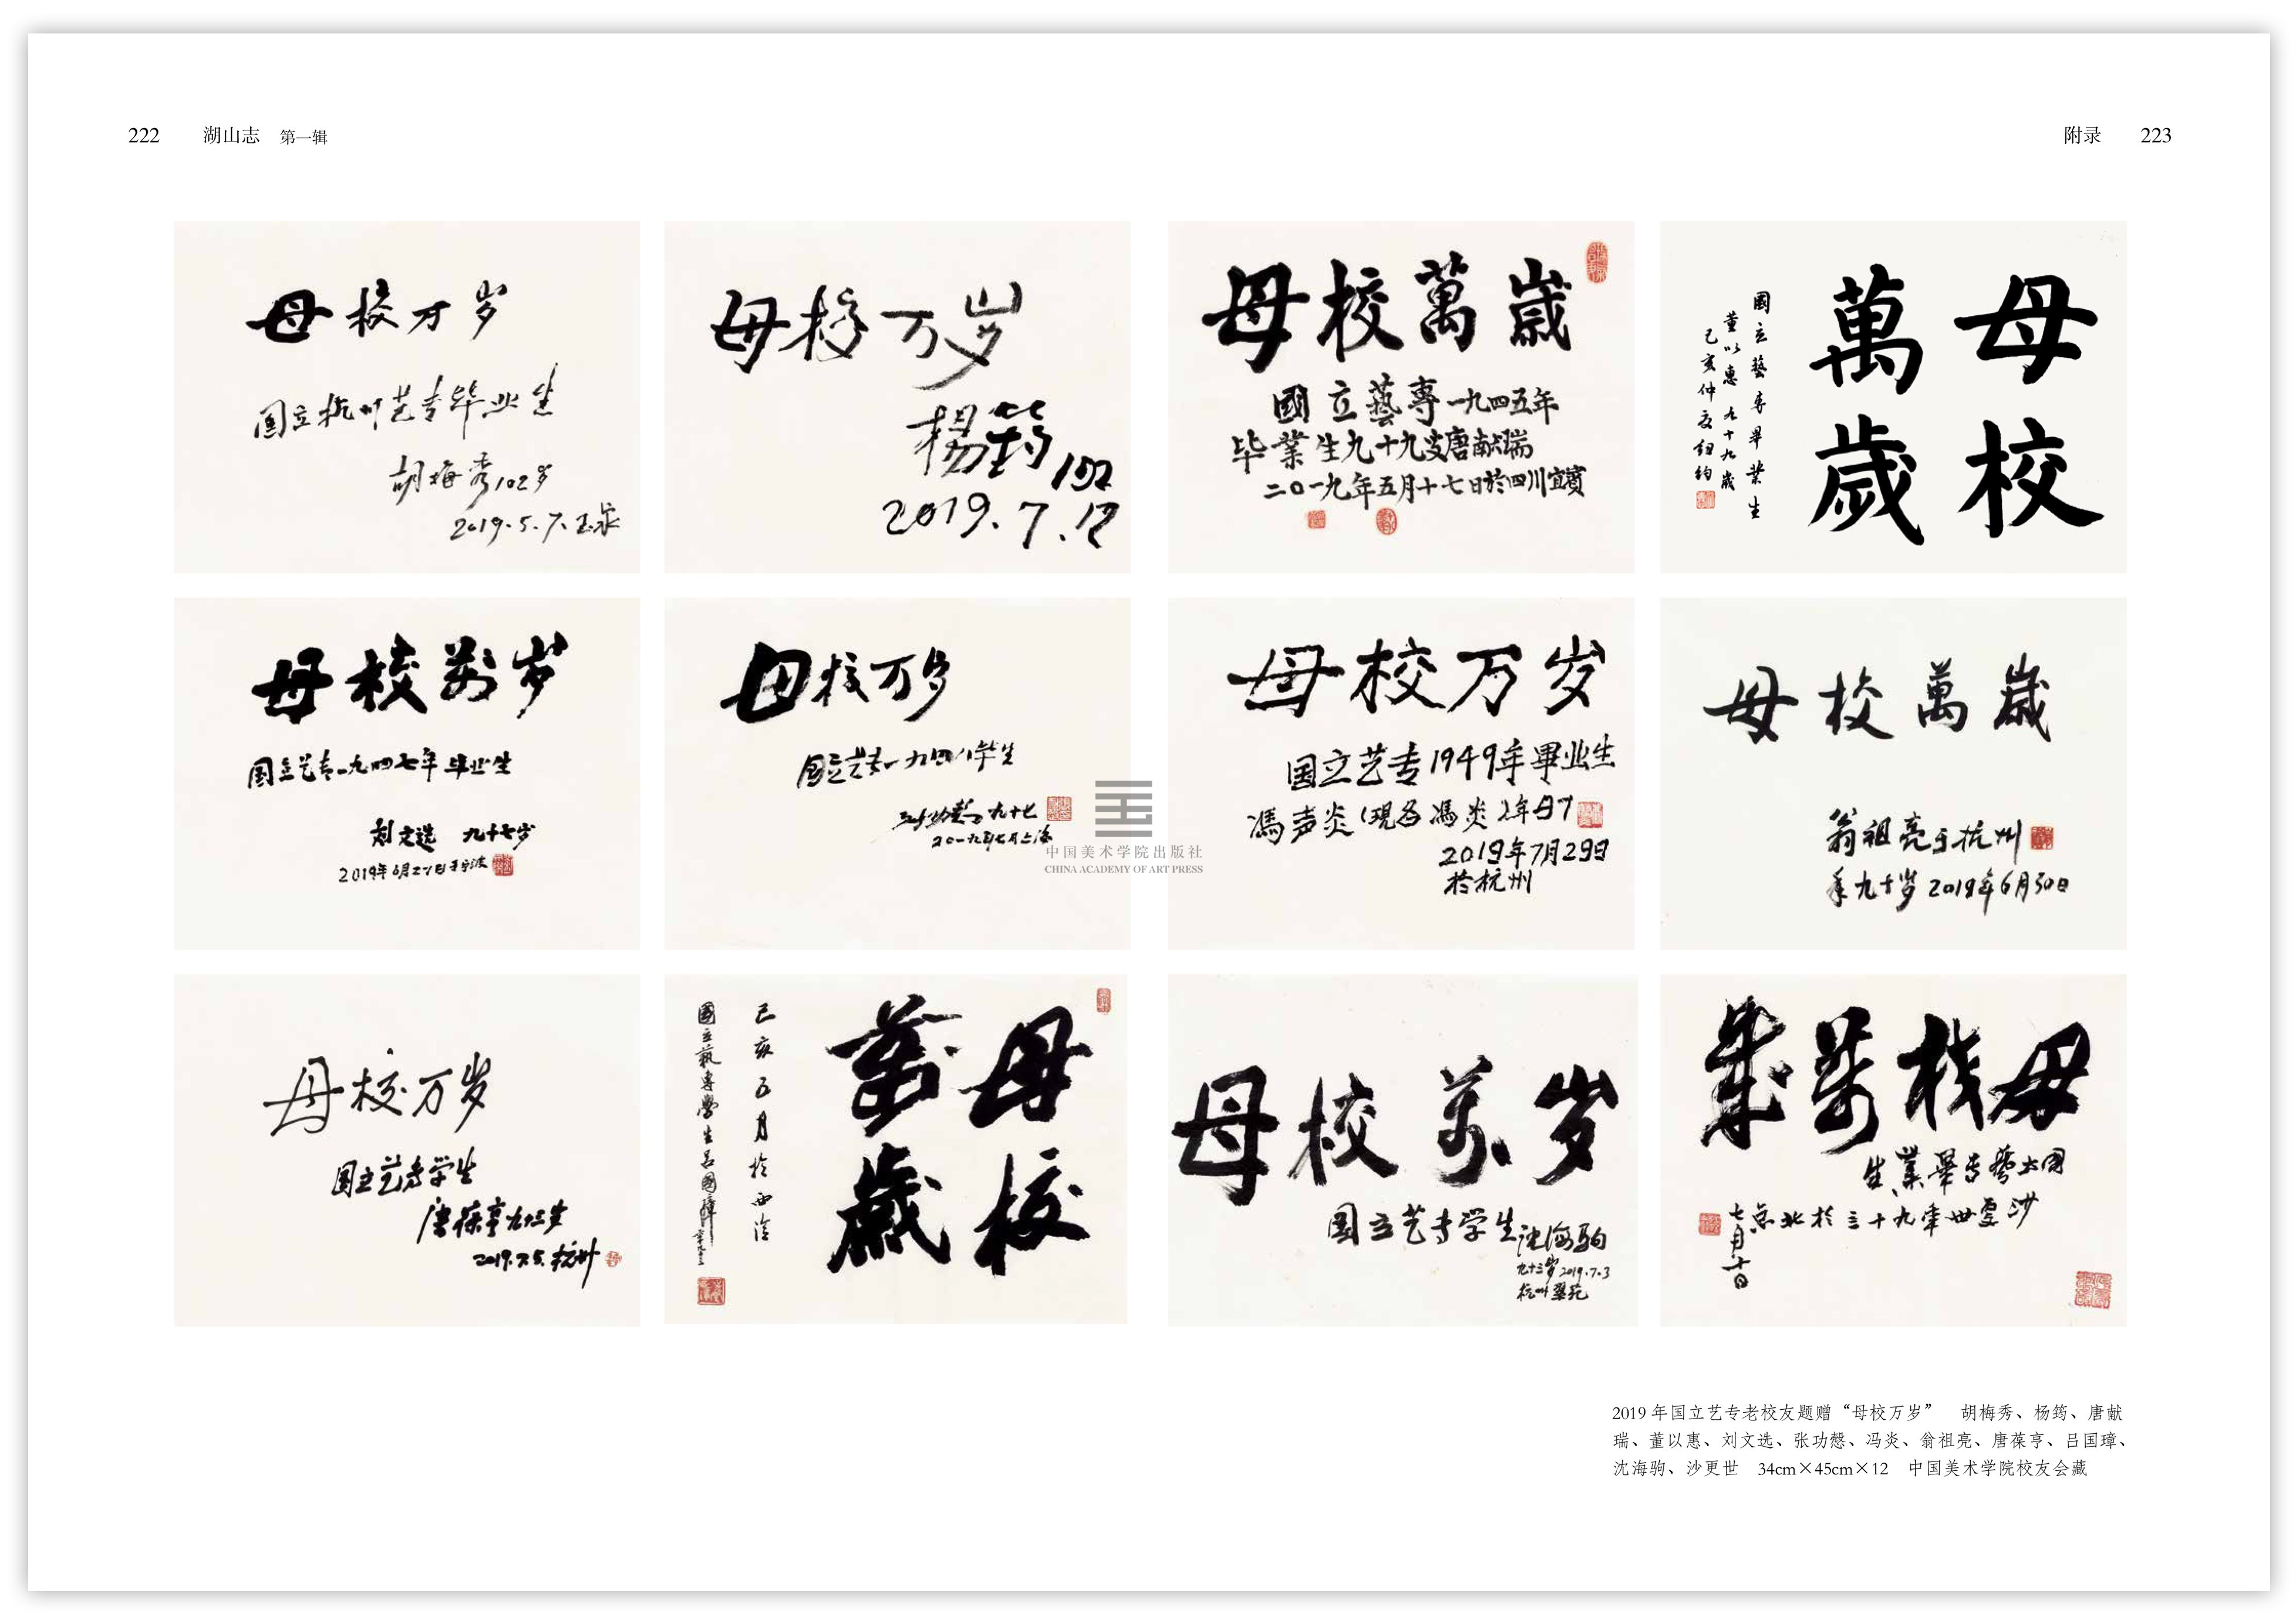 222 湖山志 第一辑
附录 223
母校万岁
国立杭州艺专毕业生
胡梅秀102岁
2019.5.7.玉泉
母校万岁
楊筠102
2019.7.12
母校萬歲
國立藝專一九四五年
毕業生九十九叟唐献瑞
二〇一九年五月十七日於四川宜賓
母校
萬歲
國立藝專畢業生
董以惠九十九歲
己亥仲夏纽约
母校萬岁
国立艺专一九四七年毕业生
刘文选 九十七岁
2019年6月27日于宁波
母校万岁
国立艺专一九四八毕生
张功慤九十七
二〇一九年七月上海
母校万岁
国立艺专1949年畢业生
馮声炎(现名馮炎)年97
2019年7月29日
於杭州
母校萬歲
翁祖亮于杭州
年九十岁2019年6月30日
母校万岁
国立艺专学生
唐葆亨九十三岁
2019.7.5.杭州
母校
萬歲
己亥五月於西泠
國立藝專學生吕國璋年九十三
母校萬岁
国立艺专学生沈海驹
九十三岁2019.7.3
杭州翠苑
母校萬歲
国立藝专畢業生
沙更世年九十三於北京
七月十日
中国美术学院出版社
CHINA ACADEMY OF ART PRESS
2019 年国立艺专老校友题赠“母校万岁” 胡梅秀、杨筠、唐献
瑞、董以惠、刘文选、张功慤、冯炎、翁祖亮、唐葆亨、吕国璋、
沈海驹、沙更世 34cm×45cm×12 中国美术学院校友会藏